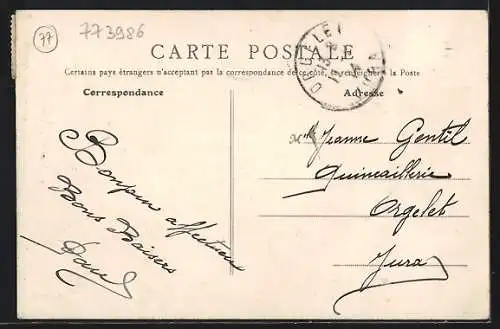 77
773986
CARTE POSTALE
Certains pays étrangers n'acceptant pas la correspondance de ce côté, se renseigner à la Poste
Correspondance
Adresse
Mlle Jeanne Gentil
Quincaillerie
Orgelet
Jura
affectueux
Bons Baisers